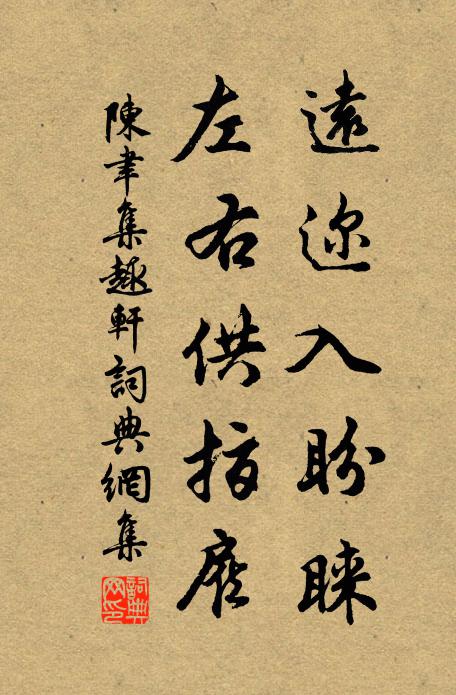 遠迩入盼睞
左右供指麾
陳聿集趣軒詞典網集
詞典网印